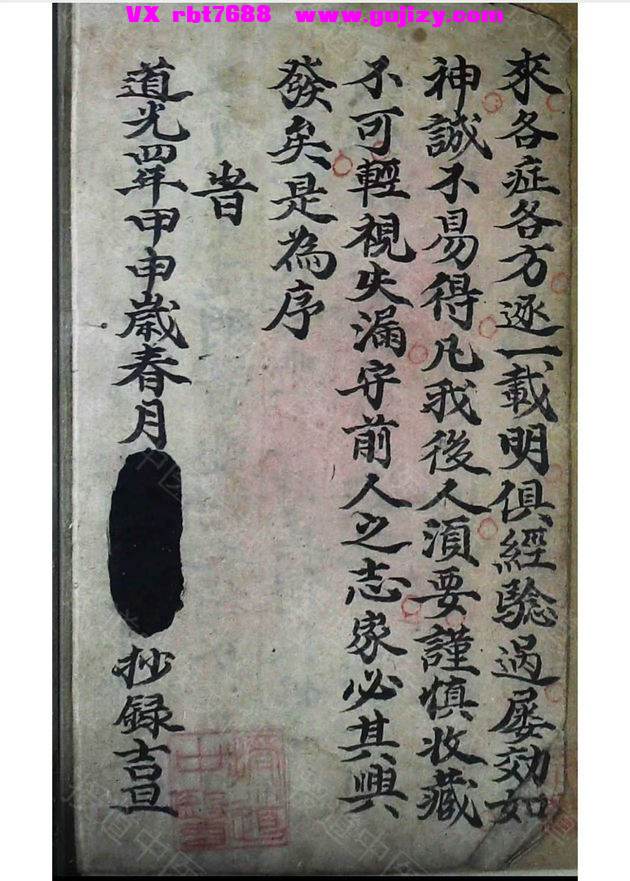 VX rbt7688 www.gujizy.com
來各症各方逐一載明俱經驗過屡効如
神誠不易得凡我後人須要謹慎收藏
不可輕視失漏守前人之志家必其興
發矣是為序
時
道光四年甲申歲春月
抄録吉旦